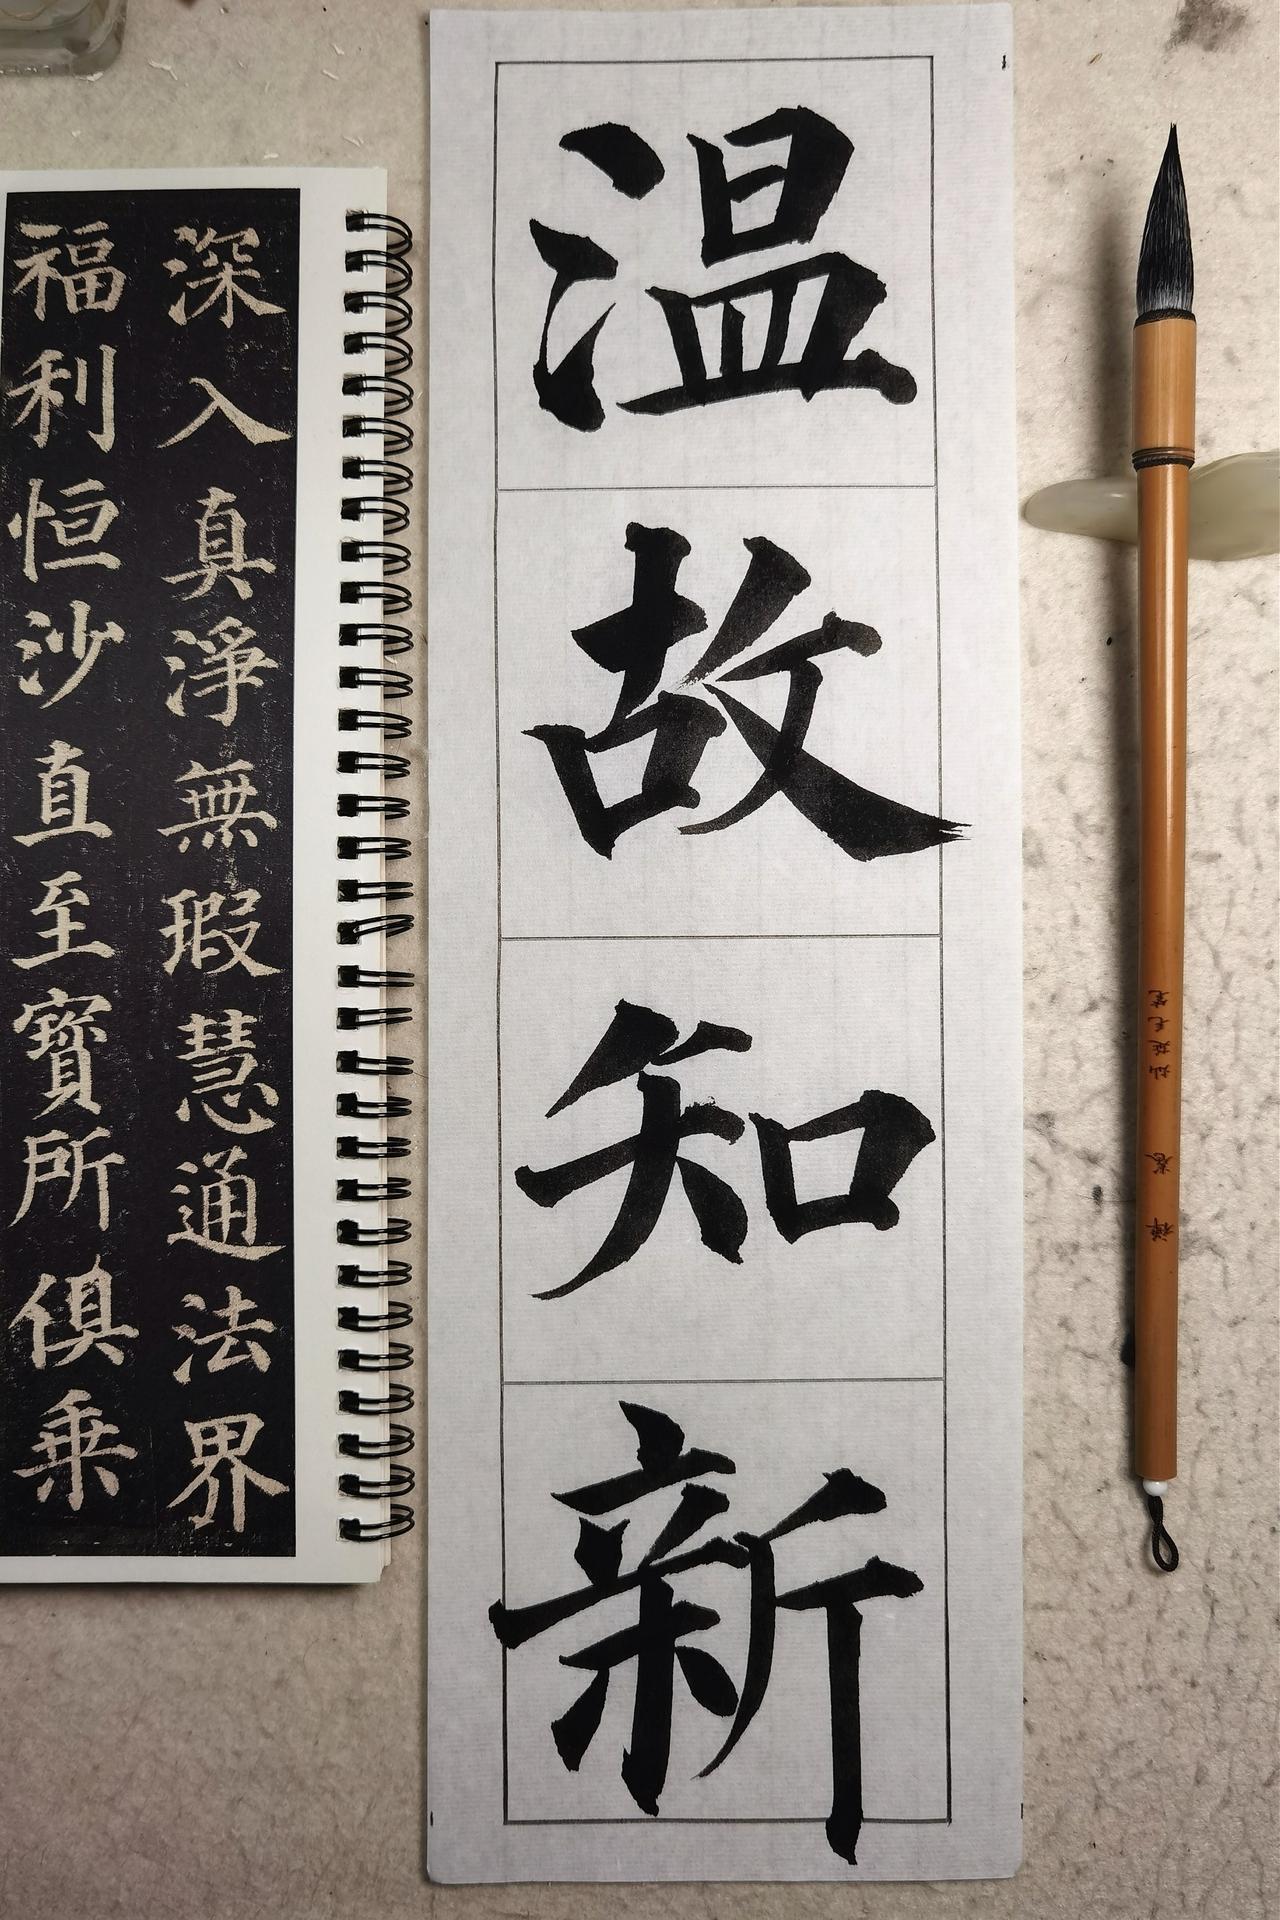 温故知新
深入真淨無瑕慧通法界
福利恒沙直至寶所俱乗